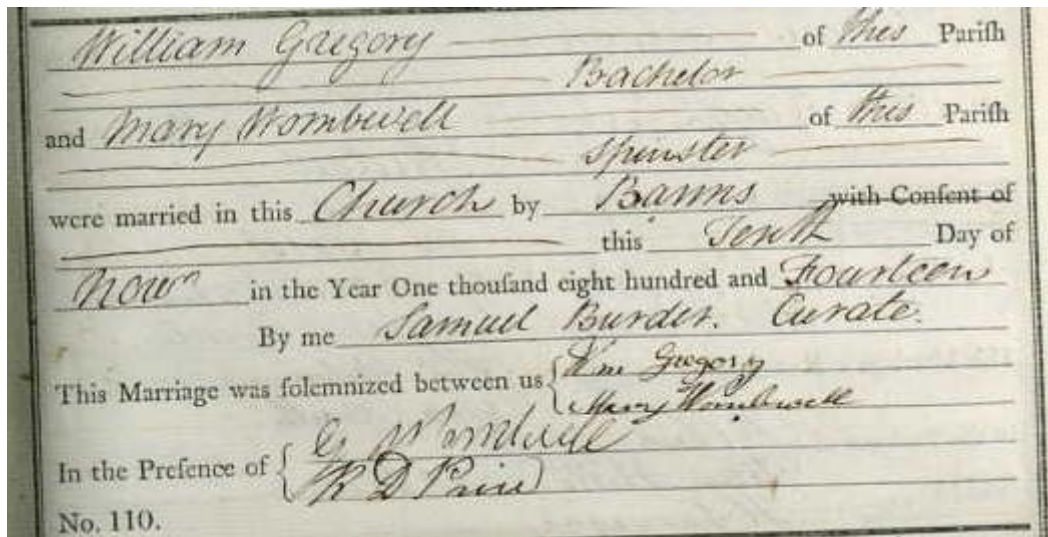 William Gregory of this Pariſh
Bachelor
and Mary Wombwell of this Pariſh
Spinster
were married in this Church by Banns with Conſent of
this Tenth Day of
Novr in the Year One thouſand eight hundred and Fourteen
By me Samuel Burder. Curate.
This Marriage was ſolemnized between us Wm Gregory
Mary Wombwell
In the Preſence of G Wombwell
R D Paine
No. 110.